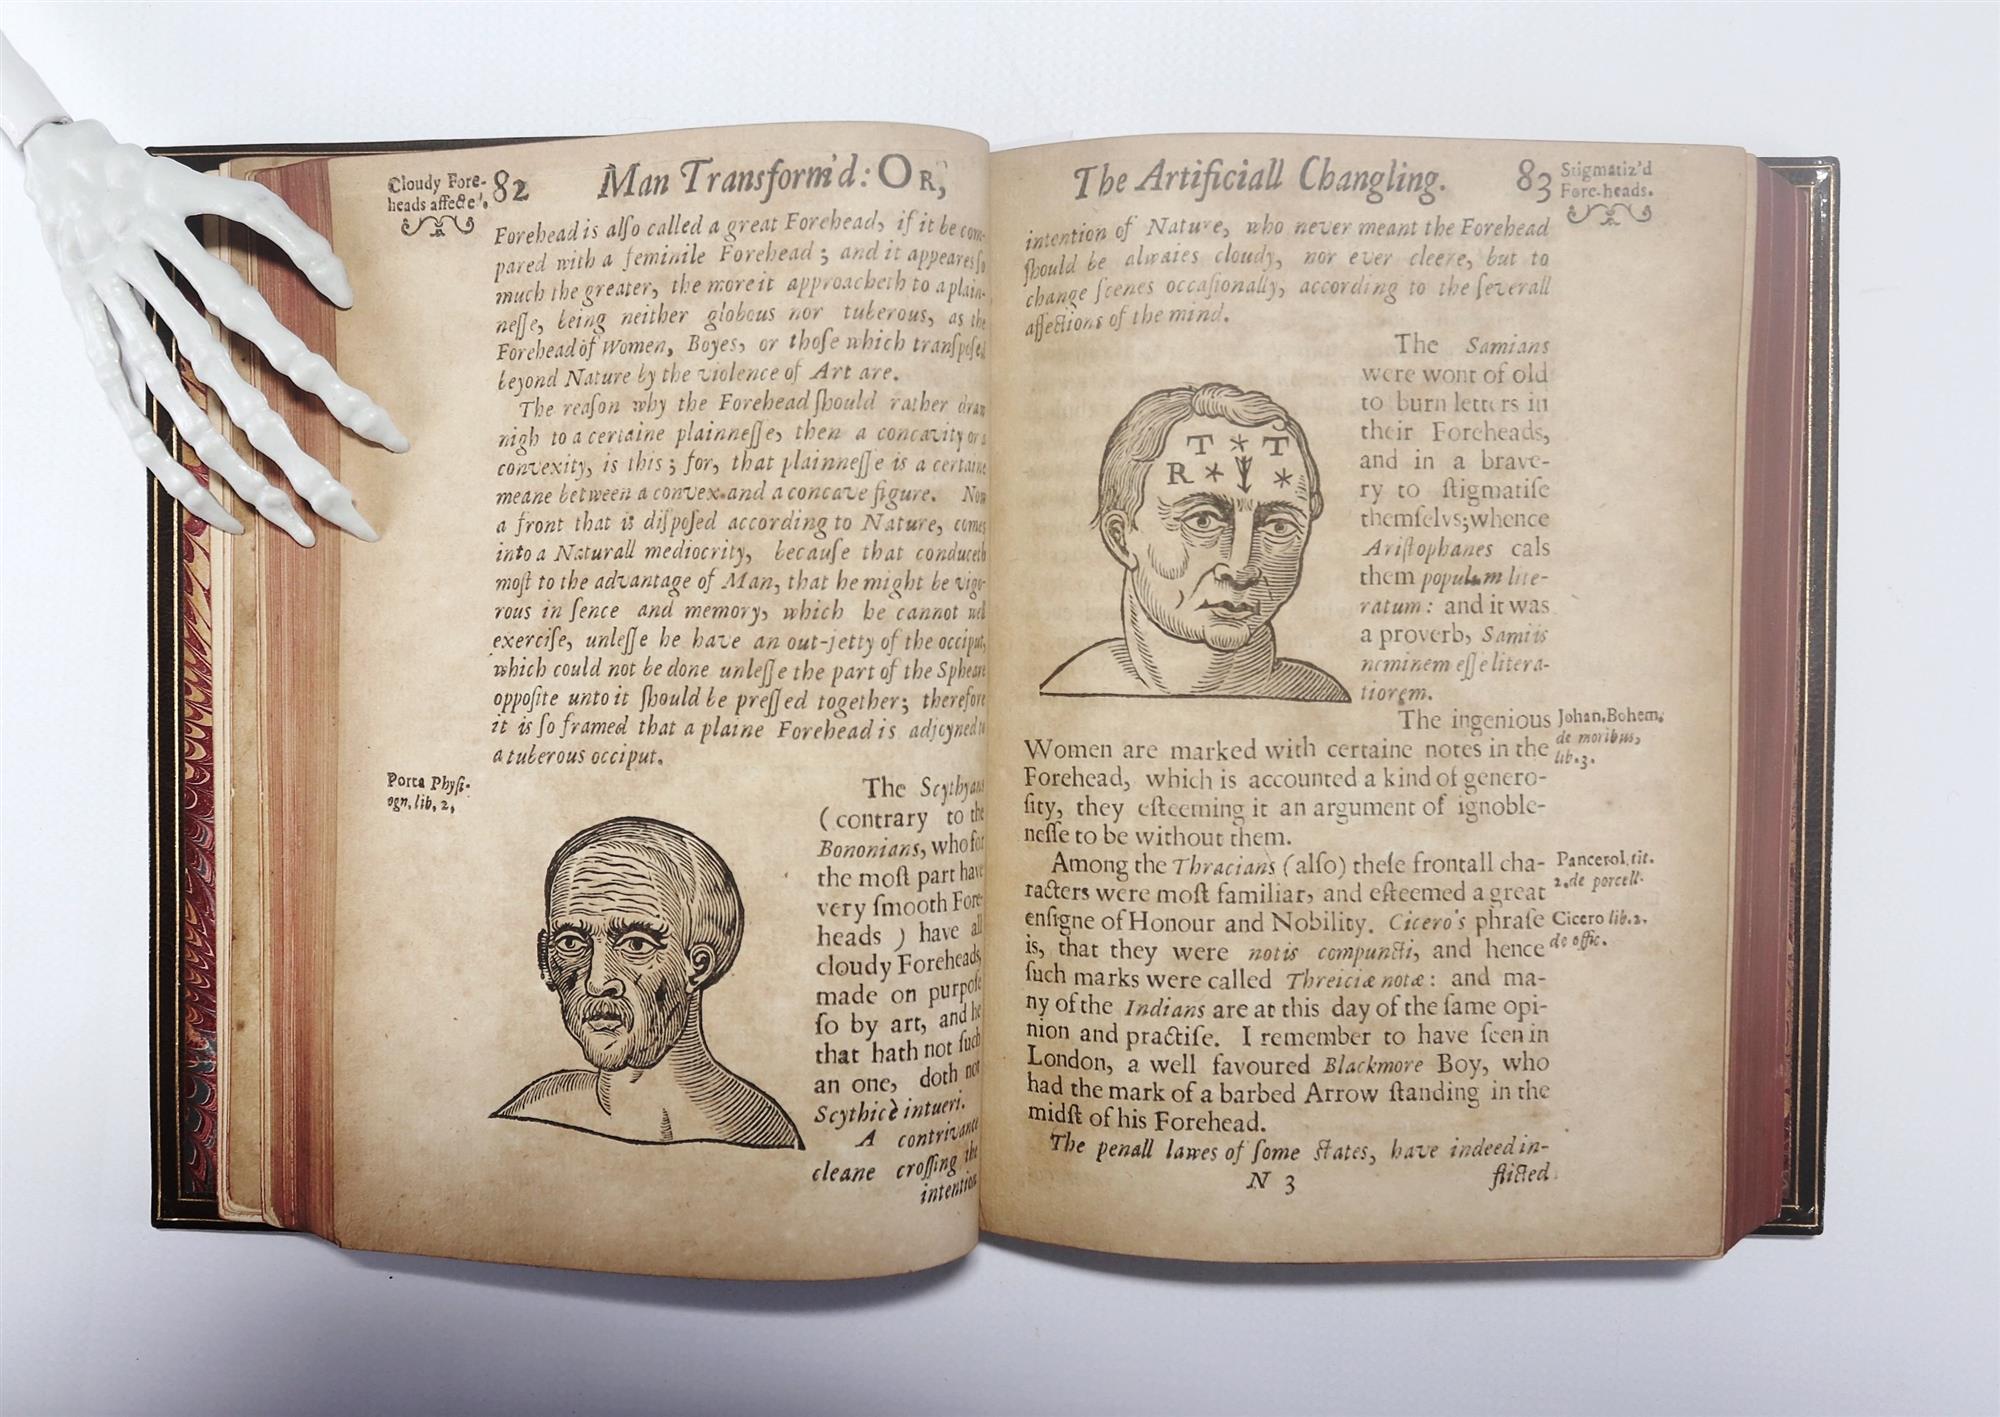 Cloudy Fore-
heads affecte
82
Man Transform'd: OR,
Forehead is alſo called a great Forehead, if it be com-
pared with a feminile Forehead; and it appeares ſo
much the greater, the more it approacheth to a plain-
neſſe, being neither globous nor tuberous, as the
Forehead of Women, Boyes, or thoſe which tranſpoſed
beyond Nature by the violence of Art are.
The reaſon why the Forehead ſhould rather draw
nigh to a certaine plainneſſe, then a concavity or a
convexity, is this; for, that plainneſſe is a certaine
meane between a convex and a concave figure. Now
a front that is diſpoſed according to Nature, comes
into a Naturall mediocrity, becauſe that conduceth
moſt to the advantage of Man, that he might be vigo-
rous in ſence and memory, which he cannot well
exerciſe, unleſſe he have an out-jetty of the occiput,
which could not be done unleſſe the part of the Spheare
oppoſite unto it ſhould be preſſed together; therefore
it is ſo framed that a plaine Forehead is adjoyned to
a tuberous occiput.
Porta Phyſi-
ogn. lib, 2,
The Scythyans
(contrary to the
Bononians, who for
the moſt part have
very ſmooth Fore-
heads) have all
cloudy Foreheads,
made on purpoſe
ſo by art, and he
that hath not ſuch
an one, doth not
Scythicè intueri.
A contrivance
cleane croſſing the
intention
The Artificiall Changling.
83
Stigmatiz'd
Fore-heads.
intention of Nature, who never meant the Forehead
ſhould be alwaies cloudy, nor ever cleere, but to
change ſcenes occaſionally, according to the ſeverall
affections of the mind.
T * T
R * *
The Samians
were wont of old
to burn letters in
their Foreheads,
and in a brave-
ry to ſtigmatiſe
themſelvs; whence
Ariſtophanes cals
them populum lite-
ratum: and it was
a proverb, Samiis
neminem eſſe litera-
tiorem.
The ingenious
Women are marked with certaine notes in the
Forehead, which is accounted a kind of genero-
ſity, they eſteeming it an argument of ignoble-
neſſe to be without them.
Johan. Bohem.
de moribus,
lib. 3.
Among the Thracians (alſo) theſe frontall cha-
racters were moſt familiar, and eſteemed a great
enſigne of Honour and Nobility. Cicero's phraſe
is, that they were notis compuncti, and hence
ſuch marks were called Threiciæ notæ: and ma-
ny of the Indians are at this day of the ſame opi-
nion and practiſe. I remember to have ſeen in
London, a well favoured Blackmore Boy, who
had the mark of a barbed Arrow ſtanding in the
midſt of his Forehead.
Pancerol. tit.
2. de porcell.
Cicero lib. 2.
de offic.
The penall lawes of ſome ſtates, have indeed in-
N 3
flicted